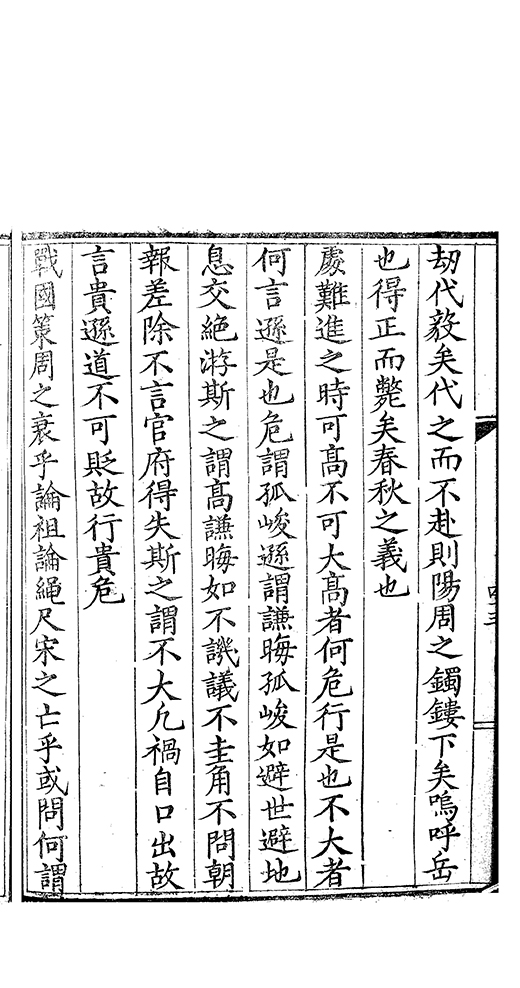 劫代毅矣代之而不赴則陽周之鐲鏤下矣嗚呼岳
也得正而斃矣春秋之義也
處難進之時可高不可大高者何危行是也不大者
何言遜是也危謂孤峻遜謂謙晦孤峻如避世避地
息交絶游斯之謂高謙晦如不譏議不圭角不問朝
報差除不言官府得失斯之謂不大凢禍自口出故
言貴遜道不可貶故行貴危
戰國策周之衰乎論祖論繩尺宋之亡乎或問何謂